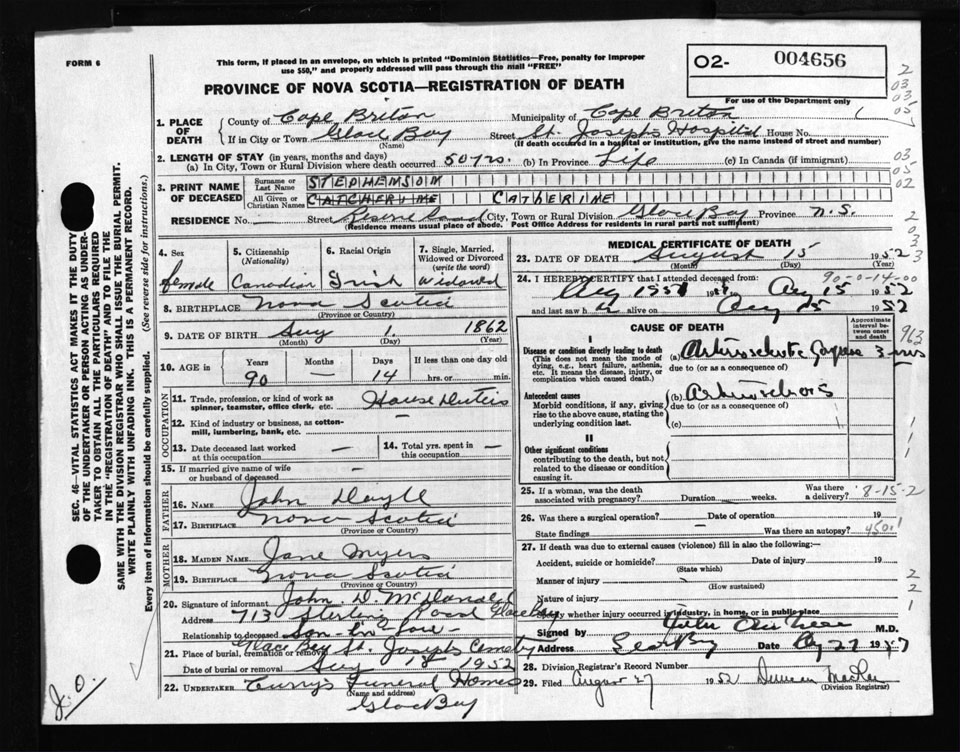 FORM 6
This form, if placed in an envelope, on which is printed "Dominion Statistics—Free, penalty for improper
use $50," and properly addressed will pass through the mail "FREE"
O2- 004656
For use of the Department only
PROVINCE OF NOVA SCOTIA—REGISTRATION OF DEATH
1. PLACE OF DEATH
County of Cape Briton Municipality of Cape Briton
If in City or Town Glace Bay (Name) Street St. Joseph's Hospital House No.
(If death occurred in a hospital or institution, give the name instead of street and number)
2. LENGTH OF STAY (in years, months and days)
(a) In City, Town or Rural Division where death occurred 50 yrs. (b) In Province Life (c) In Canada (if immigrant)
3. PRINT NAME OF DECEASED
Surname or Last Name STEPHEMSOM
All Given or Christian Names CATCHERIME CATHERIME
RESIDENCE No. Street Reserve Road City, Town or Rural Division Glace Bay Province N.S.
(Residence means usual place of abode. Post Office Address for residents in rural parts not sufficient)
4. Sex female
5. Citizenship (Nationality) Canadian
6. Racial Origin Irish
7. Single, Married, Widowed or Divorced (write the word) Widowed
8. BIRTHPLACE Nova Scotia
(Province or Country)
9. DATE OF BIRTH Aug 1. 1862
(Month) (Day) (Year)
10. AGE in Years 90 Months — Days 14 If less than one day old hrs. or min.
OCCUPATION
11. Trade, profession, or kind of work as spinner, teamster, office clerk, etc. House Duties
12. Kind of industry or business, as cotton-mill, lumbering, bank, etc.
13. Date deceased last worked at this occupation —
14. Total yrs. spent in this occupation —
15. If married give name of wife or husband of deceased
FATHER
16. NAME John Doyle
17. BIRTHPLACE Nova Scotia
(Province or Country)
MOTHER
18. MAIDEN NAME Jane Myers
19. BIRTHPLACE Nova Scotia
(Province or Country)
20. Signature of informant John D. McDonald
Address 713 Sterling Road Glace Bay
Relationship to deceased Son-in-law
21. Place of burial, cremation or removal Glace Bay St. Josephs Cemetery
Date of burial or removal Aug 1952
22. UNDERTAKER Curry's Funeral Homes
(Name and address)
Glace Bay
MEDICAL CERTIFICATE OF DEATH
23. DATE OF DEATH August 15 1952
(Month) (Day) (Year)
90-0-14-00
24. I HEREBY CERTIFY that I attended deceased from:
Aug 1951 19 Aug 15 1952
and last saw h alive on Aug 1952
CAUSE OF DEATH
Approximate interval between onset and death
I
Disease or condition directly leading to death
(This does not mean the mode of dying, e.g., heart failure, asthenia, etc. It means the disease, injury, or complication which caused death.)
(a)
due to (or as a consequence of)
Antecedent causes
Morbid conditions, if any, giving rise to the above cause, stating the underlying condition last.
(b)
due to (or as a consequence of)
(c)
II
Other significant conditions
contributing to the death, but not related to the disease or condition causing it.
25. If a woman, was the death associated with pregnancy? Duration weeks. Was there a delivery?
8-15-2
26. Was there a surgical operation? Date of operation 19
State findings Was there an autopsy?
27. If death was due to external causes (violence) fill in also the following:—
Accident, suicide or homicide? Date of injury 19
(State which)
Manner of injury
(How sustained)
Nature of injury
Specify whether injury occurred in industry, in home, or in public place
Signed by M.D.
Address Date 27 19
28. Division Registrar's Record Number
29. Filed August 27 1952 Duncan
(Division Registrar)
SEC. 46—VITAL STATISTICS ACT MAKES IT THE DUTY
OF THE UNDERTAKER OR PERSON ACTING AS UNDER-
TAKER TO OBTAIN ALL THE PARTICULARS REQUIRED
IN THE "REGISTRATION OF DEATH" AND TO FILE THE
SAME WITH THE DIVISION REGISTRAR WHO SHALL ISSUE THE BURIAL PERMIT.
WRITE PLAINLY WITH UNFADING INK. THIS IS A PERMANENT RECORD.
Every item of information should be carefully supplied. (See reverse side for instructions.)
J.O.